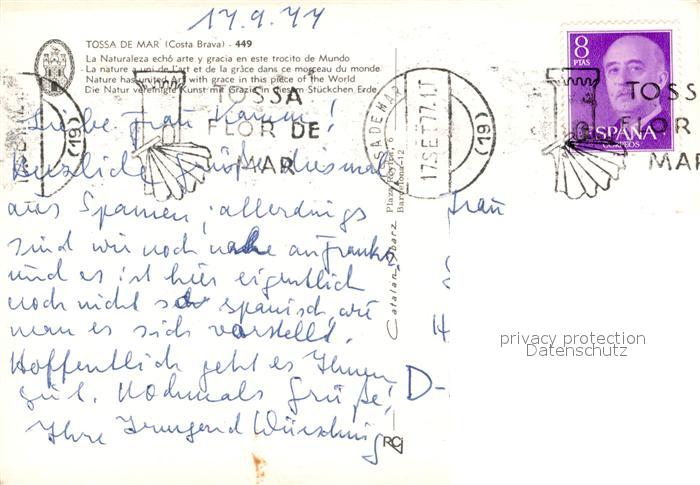 17.9.77
TOSSA DE MAR (Costa Brava) - 449
La Naturaleza echó arte y gracia en este trocito de Mundo
La nature a uni de l'art et de la grâce dans ce morceau du monde
Nature has united Art with grace in this piece of the World
Die Natur vereinigte Kunst mit Grazie in diesem Stückchen Erde
8
PTAS
ESPAÑA
CORREOS
TOSSA
FLOR DE
MAR
(19)
17SET77.1T
(19)
TOSS
FLOR
MAR
Liebe Frau
Herzliche Grüße diesmal
aus Spanien; allerdings
sind wir noch nahe an
und es ist hier eigentlich
noch nicht so spanisch, wie
man es sich vorstellt.
Hoffentlich geht es Ihnen
gut. Nochmals Grüße!
Ihre Irmgard
Frau
H
D-
Plaza Reyes, 6
Barcelona-12
RG
privacy protection
Datenschutz